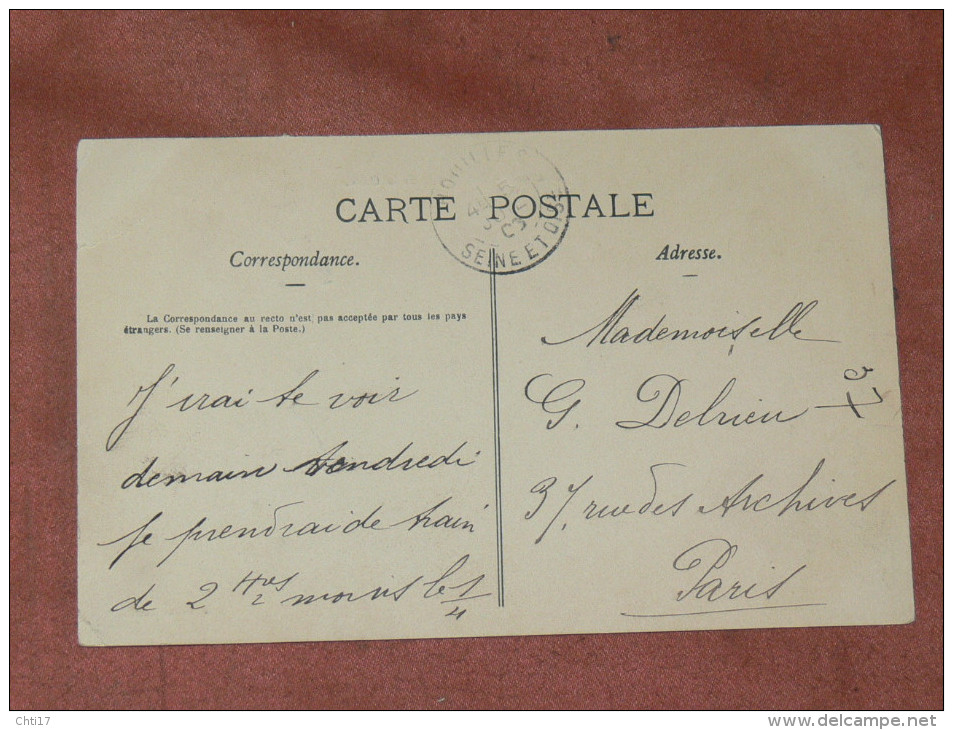 CARTE POSTALE
SEINE ET OISE
Correspondance.
La Correspondance au recto n'est pas acceptée par tous les pays
étrangers. (Se renseigner à la Poste.)
J'irai te voir
demain vendredi
je prendrai de train
de 2 Hres moins le 1/4
Adresse.
Mademoiselle
G. Delrieu
37, rue des Archives
Paris
Chti17
www.delcampe.net